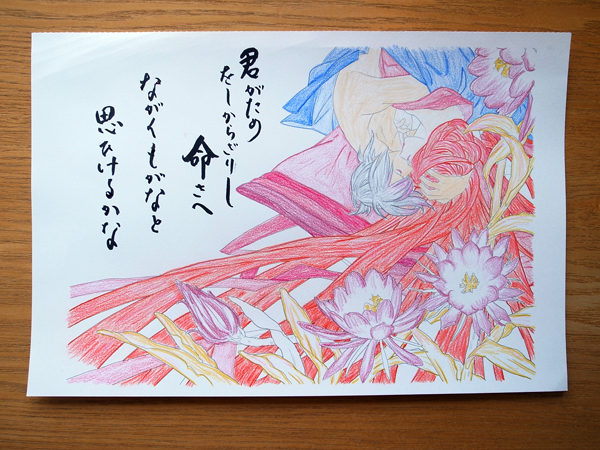 君がため
をしからざりし
命さへ
ながくもがなと
思ひけるかな